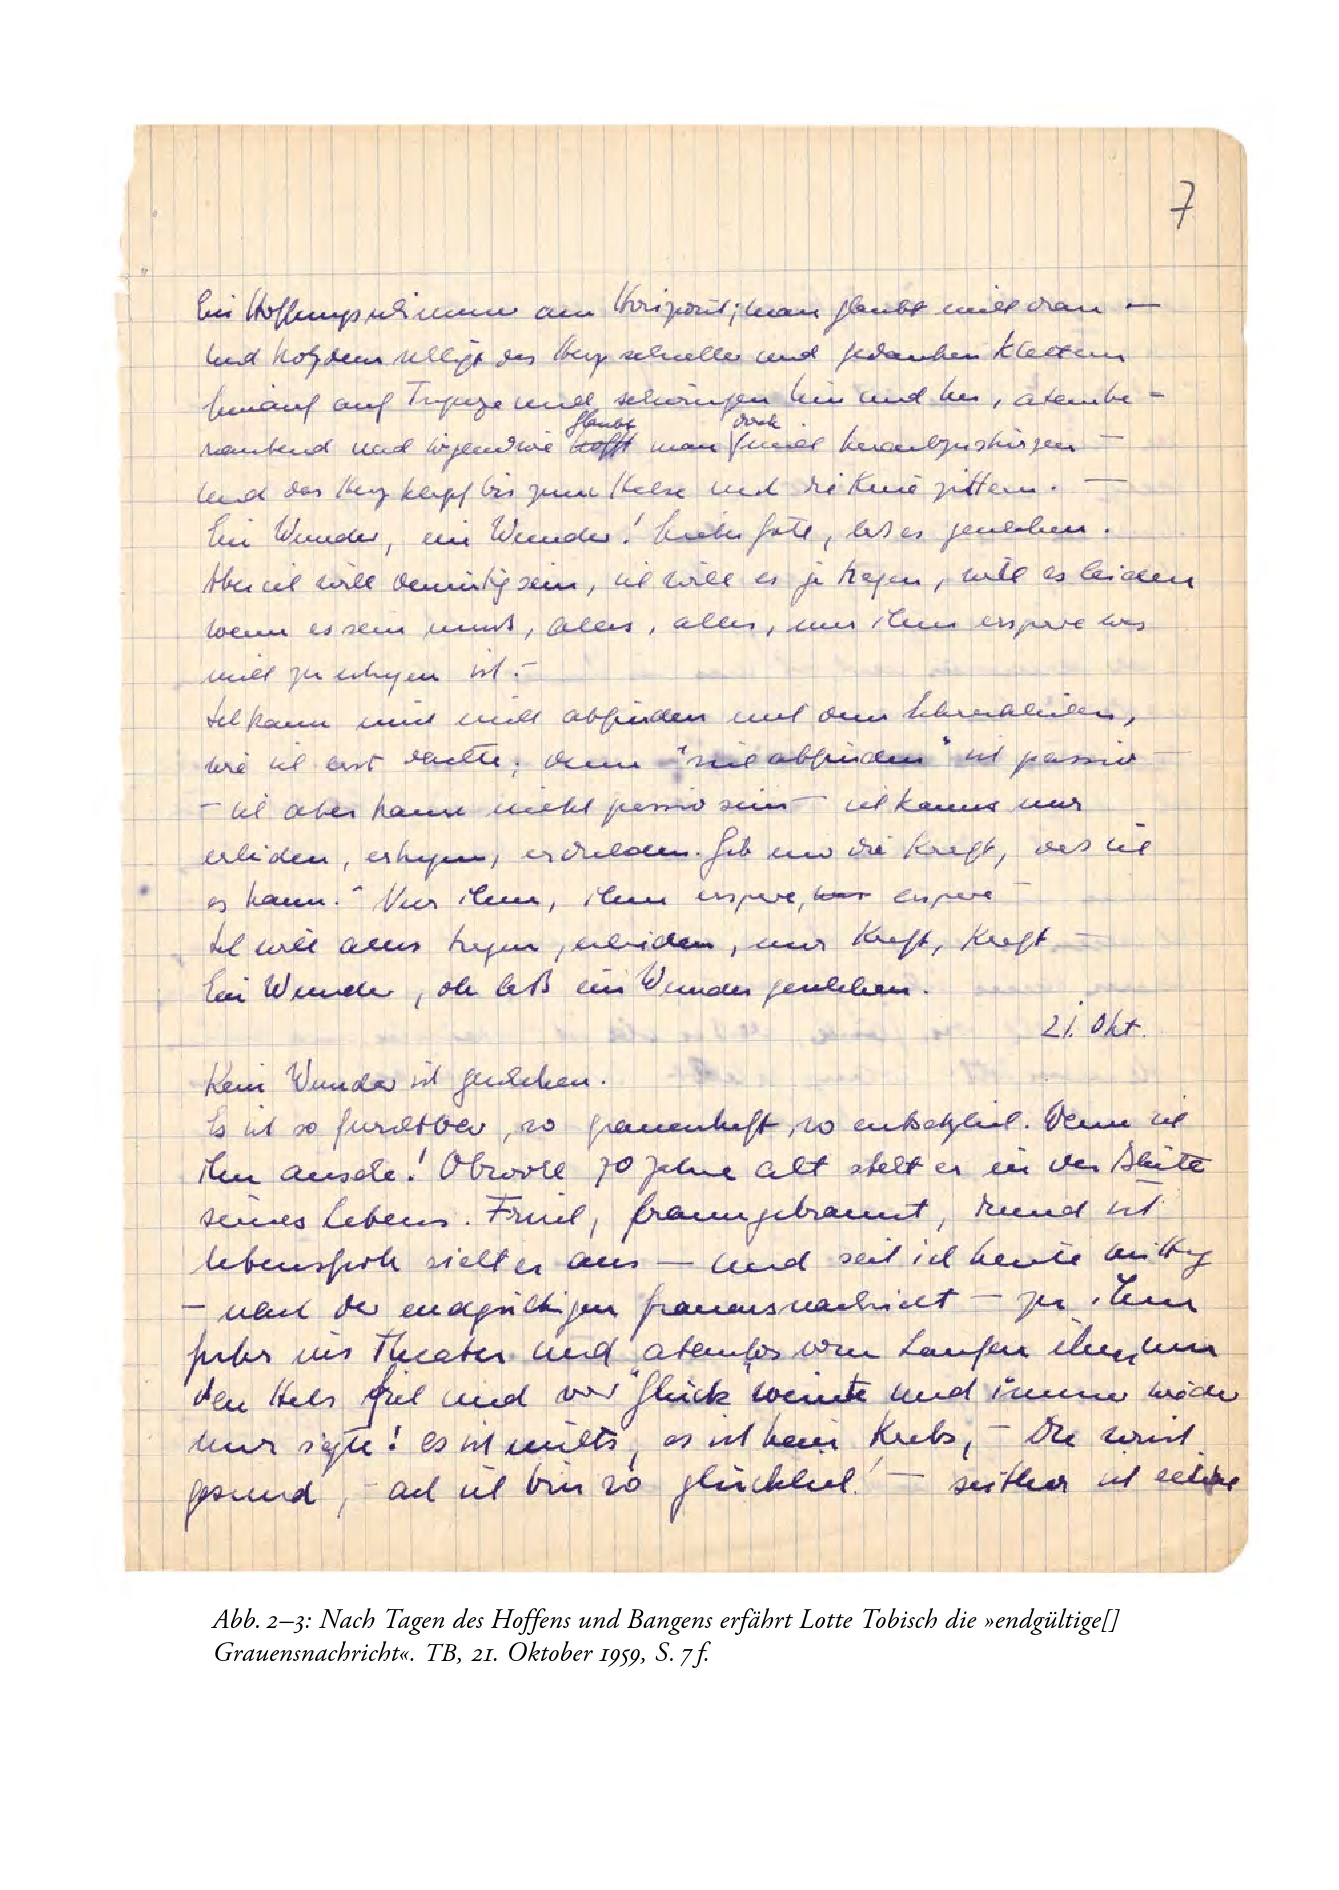 7
Ein Hoffnungsschimmer am Horizont; man glaubt nicht dran —
Und trotzdem schlägt das Herz schneller und Gedanken klettern
hinauf auf Trapeze und schwingen hin und her, atembe-
raubend und irgendwie hofft glaubt man doch nicht herabzustürzen —
Und das Herz klopft bis zum Halse und die Knie zittern. —
Ein Wunder, ein Wunder! Lieber Gott, laß es geschehen.
Aber ich will demütig sein, ich will es ja tragen, will es leiden
wenn es sein muß, alles, alles, nur ihm erspare was
nicht zu ertragen ist. —
Ich kann mich nicht abfinden mit dem
wie ich erst dachte; denn "sich abfinden" ist passiv —
— ich aber kann nicht passiv sein — ich kanns nur
erleiden, ertragen, erdulden. Gib mir die Kraft, das ich
es kann. — Nur ihm, ihm erspare, erspare —
Ich will alles tragen, erleiden, nur Kraft, Kraft —
Ein Wunder, oh laß ein Wunder geschehen.
21. Okt.
Kein Wunder ist geschehen.
Es ist so furchtbar, so grauenhaft, so entsetzlich. Wenn ich
ihn ansehe! Obwohl 70 Jahre alt steht er in der Blüte
seines Lebens. Frisch, braungebrannt, rund ist
lebensfroh sieht er aus — und seit ich heute mittag
— nach der endgültigen Grauensnachricht — zu ihm
fuhr ins Theater und atemlos vom Laufen ihm um
den Hals fiel und vor "Glück" weinte und immer wieder
nur sagte! es ist nichts, es ist kein Krebs, — Du wirst
gesund, — ach ich bin so glücklich! — seither ist
Abb. 2–3: Nach Tagen des Hoffens und Bangens erfährt Lotte Tobisch die »endgültige[]
Grauensnachricht«. TB, 21. Oktober 1959, S. 7 f.